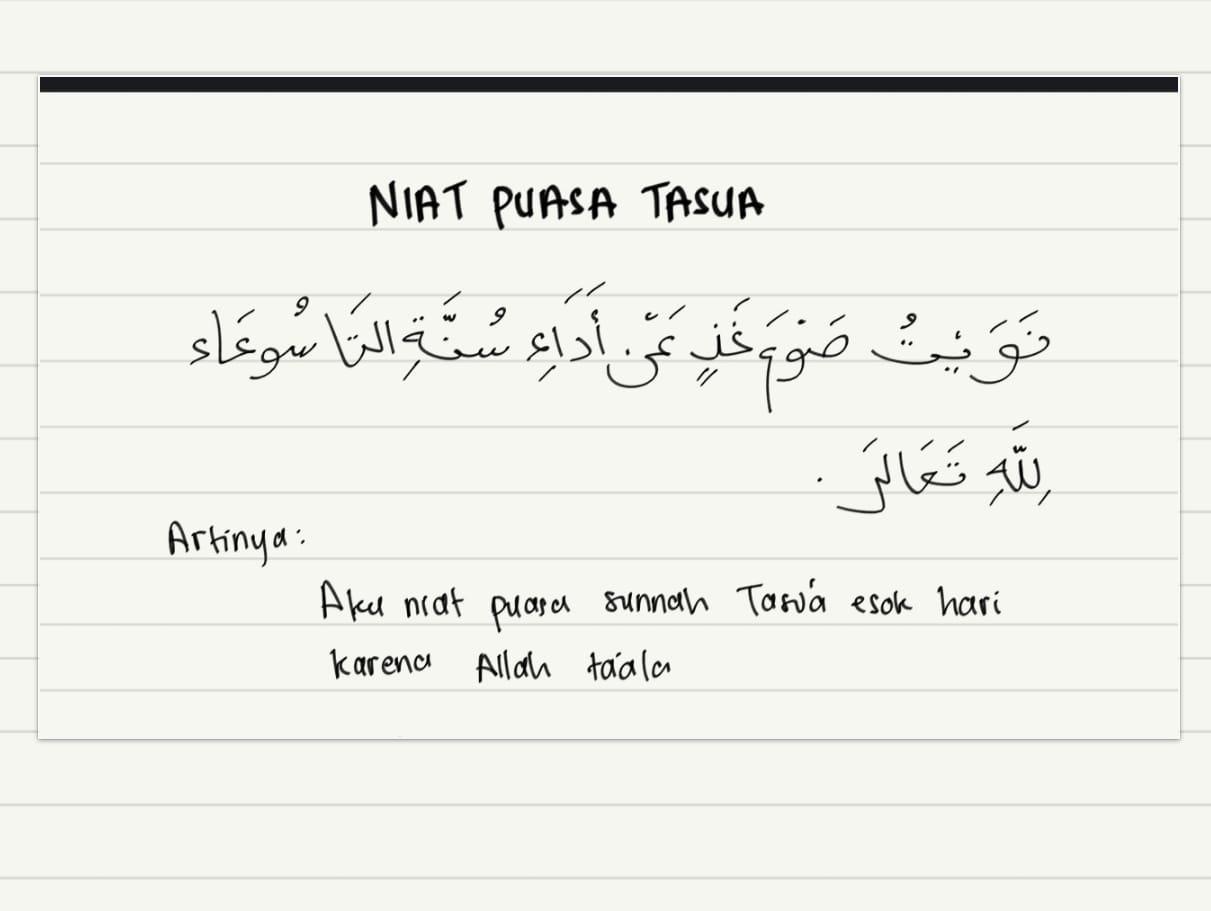 NIAT PUASA TASUA
نَوَيْتُ صَوْمَ غَدٍ عَنْ أَدَاءِ سُنَّةِ التَّاسُوعَاء
لِلَّهِ تَعَالَى .
Artinya:
Aku niat puasa sunnah Tasu'a esok hari
karena Allah ta'ala